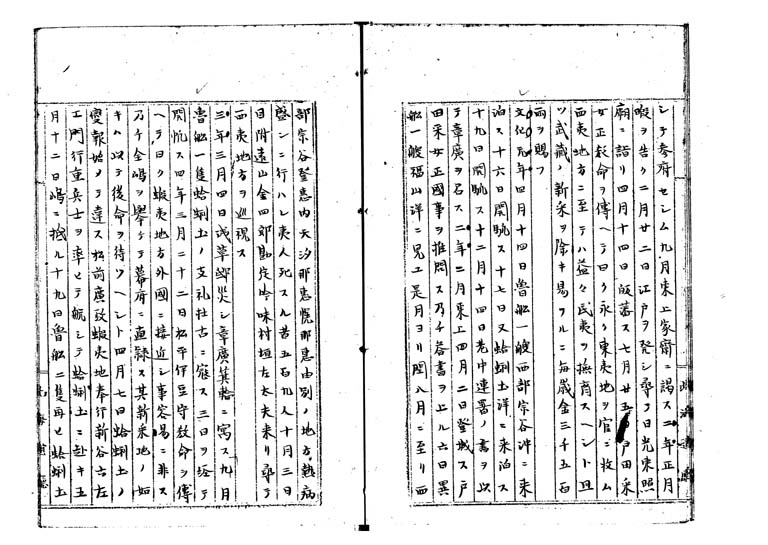 シテ参府セシム九月東上家齋ニ謁ス二年正月
暇ヲ告ク二月廿二日江戸ヲ発シ尋テ日光東照
廟ニ詣リ四月十四日販藩ス七月廿五日戸田采
女正教命ヲ傳ヘテ曰ク永ク東夷地ヲ官ニ收ム
西夷地方ニ至テハ益々民夷ヲ撫育スヘント且
ツ武藏ノ新采ヲ除キ易フルニ毎歳金三千五百
両ヲ賜フ
文化元年四月十四日魯舩一艘西部宗谷沖ニ来
泊ス十六日開帆ス十七日又蛤蜊土洋ニ来泊ス
十九日開帆ス十二月十四日老中連署ノ書ヲ以
テ章廣ヲ召ス二年二月東上四月二日登城ス戸
田采女正國事ヲ推問ス乃チ答書ヲ上ル六日異
舩一艘福山洋ニ見ユ是月ヨリ閏八月ニ至リ西
部宗谷登恵内天汐那恵慌那恵由別ノ地方熱病
盛ンニ行ハレ夷人死スル者五百九人十月三日
目附遠山金四郎勘定吟味村垣左太夫来リ尋テ
西夷地方ヲ巡視ス
三年三月四日浅草邸災シ章廣箕輪ニ寓ス九月
魯舩一隻蛤蜊土ノ支礼牡古ニ寇ス三日ヲ経テ
開帆ス四年三月二十二日松平伊豆守教命ヲ傳
ヘテ曰ク蝦夷地方外國ニ接近シ事容易ニ非ス
乃チ全嶋ヲ擧ケテ幕府ニ直隷ス其新采地ノ如
キハ以テ後命ヲ待ツヘント四月七日蛤蜊土ノ
變報始メテ達ス松前廣致蝦夷地奉行新谷六左
エ門行重兵士ヲ率ヒテ航シテ蛤蜊土ニ赴キ五
月十二日嶋ニ抵ル十九日魯舩二隻再ヒ蛤蜊土